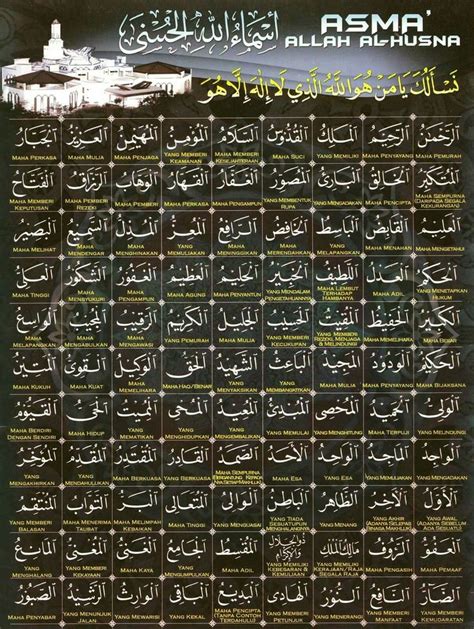 أسماء الله الحسنى
ASMA'
ALLAH AL-HUSNA
نسألك يا من هو الله الذي لا إله إلا هو
الرحمن الرحيم الملك القدوس السلام المؤمن المهيمن العزيز الجبار
MAHA PEMURAH MAHA PENYAYANG YANG MEMILIKI MAHA SUCI MAHA MEMBERI KESEJAHTERAAN YANG MEMBERI KEAMANAN MAHA PENJAGA MAHA MULIA MAHA PERKASA
المتكبر الخالق البارئ المصور الغفار القهار الوهاب الرزاق الفتاح
MAHA SEMPURNA (DARIPADA SEGALA KEKURANGAN) MAHA PENCIPTA MAHA PENYEMBUH YANG MEMBENTUK RUPA MAHA PENGAMPUN MAHA PERKASA MAHA PEMBERI MAHA PEMBERI REZEKI MAHA MEMBERI KEPUTUSAN
العليم القابض الباسط الخافض الرافع المعز المذل السميع البصير
MAHA MENGETAHUI YANG MENAHAN YANG MELAPANGKAN YANG MERENDAHKAN MAHA MENINGGIKAN YANG MEMULIAKAN MAHA MENGHINAKAN MAHA MENDENGAR MAHA MELIHAT
الحكم العدل اللطيف الخبير الحليم العظيم الغفور الشكور العلي
YANG MENETAPKAN HUKUM MAHA ADIL MAHA LEMBUT TERHADAP HAMBANYA YANG MENDALAM PENGETAHUANNYA MAHA PENYANTUN MAHA AGUNG MAHA PENGAMPUN MAHA MENSYUKURI MAHA TINGGI
الكبير الحفيظ المقيت الحسيب الجليل الكريم الرقيب المجيب الواسع
MAHA BESAR MAHA MEMELIHARA YANG MEMBERI REZEKI, MENJAGA & MELINDUNGI YANG MEMBERI KECUKUPAN MAHA MULIA YANG PEMURAH MAHA MENGAWASI MAHA MENGABULKAN MAHA MELAPANGKAN
الحكيم الودود المجيد الباعث الشهيد الحق الوكيل القوي المتين
MAHA BIJAKSANA MAHA PENYAYANG MAHA MULIA YANG MEMBANGKITKAN YANG MENYAKSIKAN MAHA HAQ/BENAR MAHA MEMELIHARA MAHA KUAT MAHA KUKUH
الولي الحميد المحصي المبدئ المعيد المحيي المميت الحي القيوم
YANG MELINDUNGI MAHA TERPUJI YANG MENGHITUNG YANG MEMULAI YANG MENGEMBALIKAN YANG MENGHIDUPKAN YANG MEMATIKAN MAHA HIDUP MAHA BERDIRI DENGAN SENDIRI
الواجد الماجد الواحد الأحد الصمد القادر المقتدر المقدم المؤخر
MAHA MULIA YANG ESA MAHA ESA MAHA SEMPURNA MAHA BERKUASA MAHA BERKUASA YANG MENDAHULUKAN YANG MENGAKHIRKAN
الأول الآخر الظاهر الباطن الوالي المتعالي البر التواب المنتقم
YANG AWAL (ADANYA SEBELUM ADA SESUATU) YANG AKHIR (ADANYA SELEPAS MAKHLUK BINASA) YANG MENANG YANG TIADA SESUATUPUN MENGHALANGNYA YANG MENGUASAI MAHA TINGGI MAHA MELIMPAH KEBAIKAN MAHA MENERIMA TAUBAT YANG MEMBERI BALASAN
العفو الرؤوف مالك الملك ذو الجلال والإكرام المقسط الجامع الغني المغني المانع
MAHA PEMAAF MAHA PENGASIH RAJA KEPADA SEGALA RAJA YANG MEMILIKI KEBESARAN & KEMULIAAN MAHA ADIL YANG MENGUMPULKAN MAHA KAYA YANG MEMBERI KEKAYAAN YANG MENGHALANG
الضار النافع النور الهادي البديع الباقي الوارث الرشيد الصبور
YANG MEMBERI MANFAAT MAHA BERCAHAYA YANG MEMBERI PETUNJUK MAHA PENCIPTA (TANPA CONTOH TERDAHULU) YANG KEKAL YANG MEWARISI YANG MENUNJUK JALAN MAHA PENYABAR